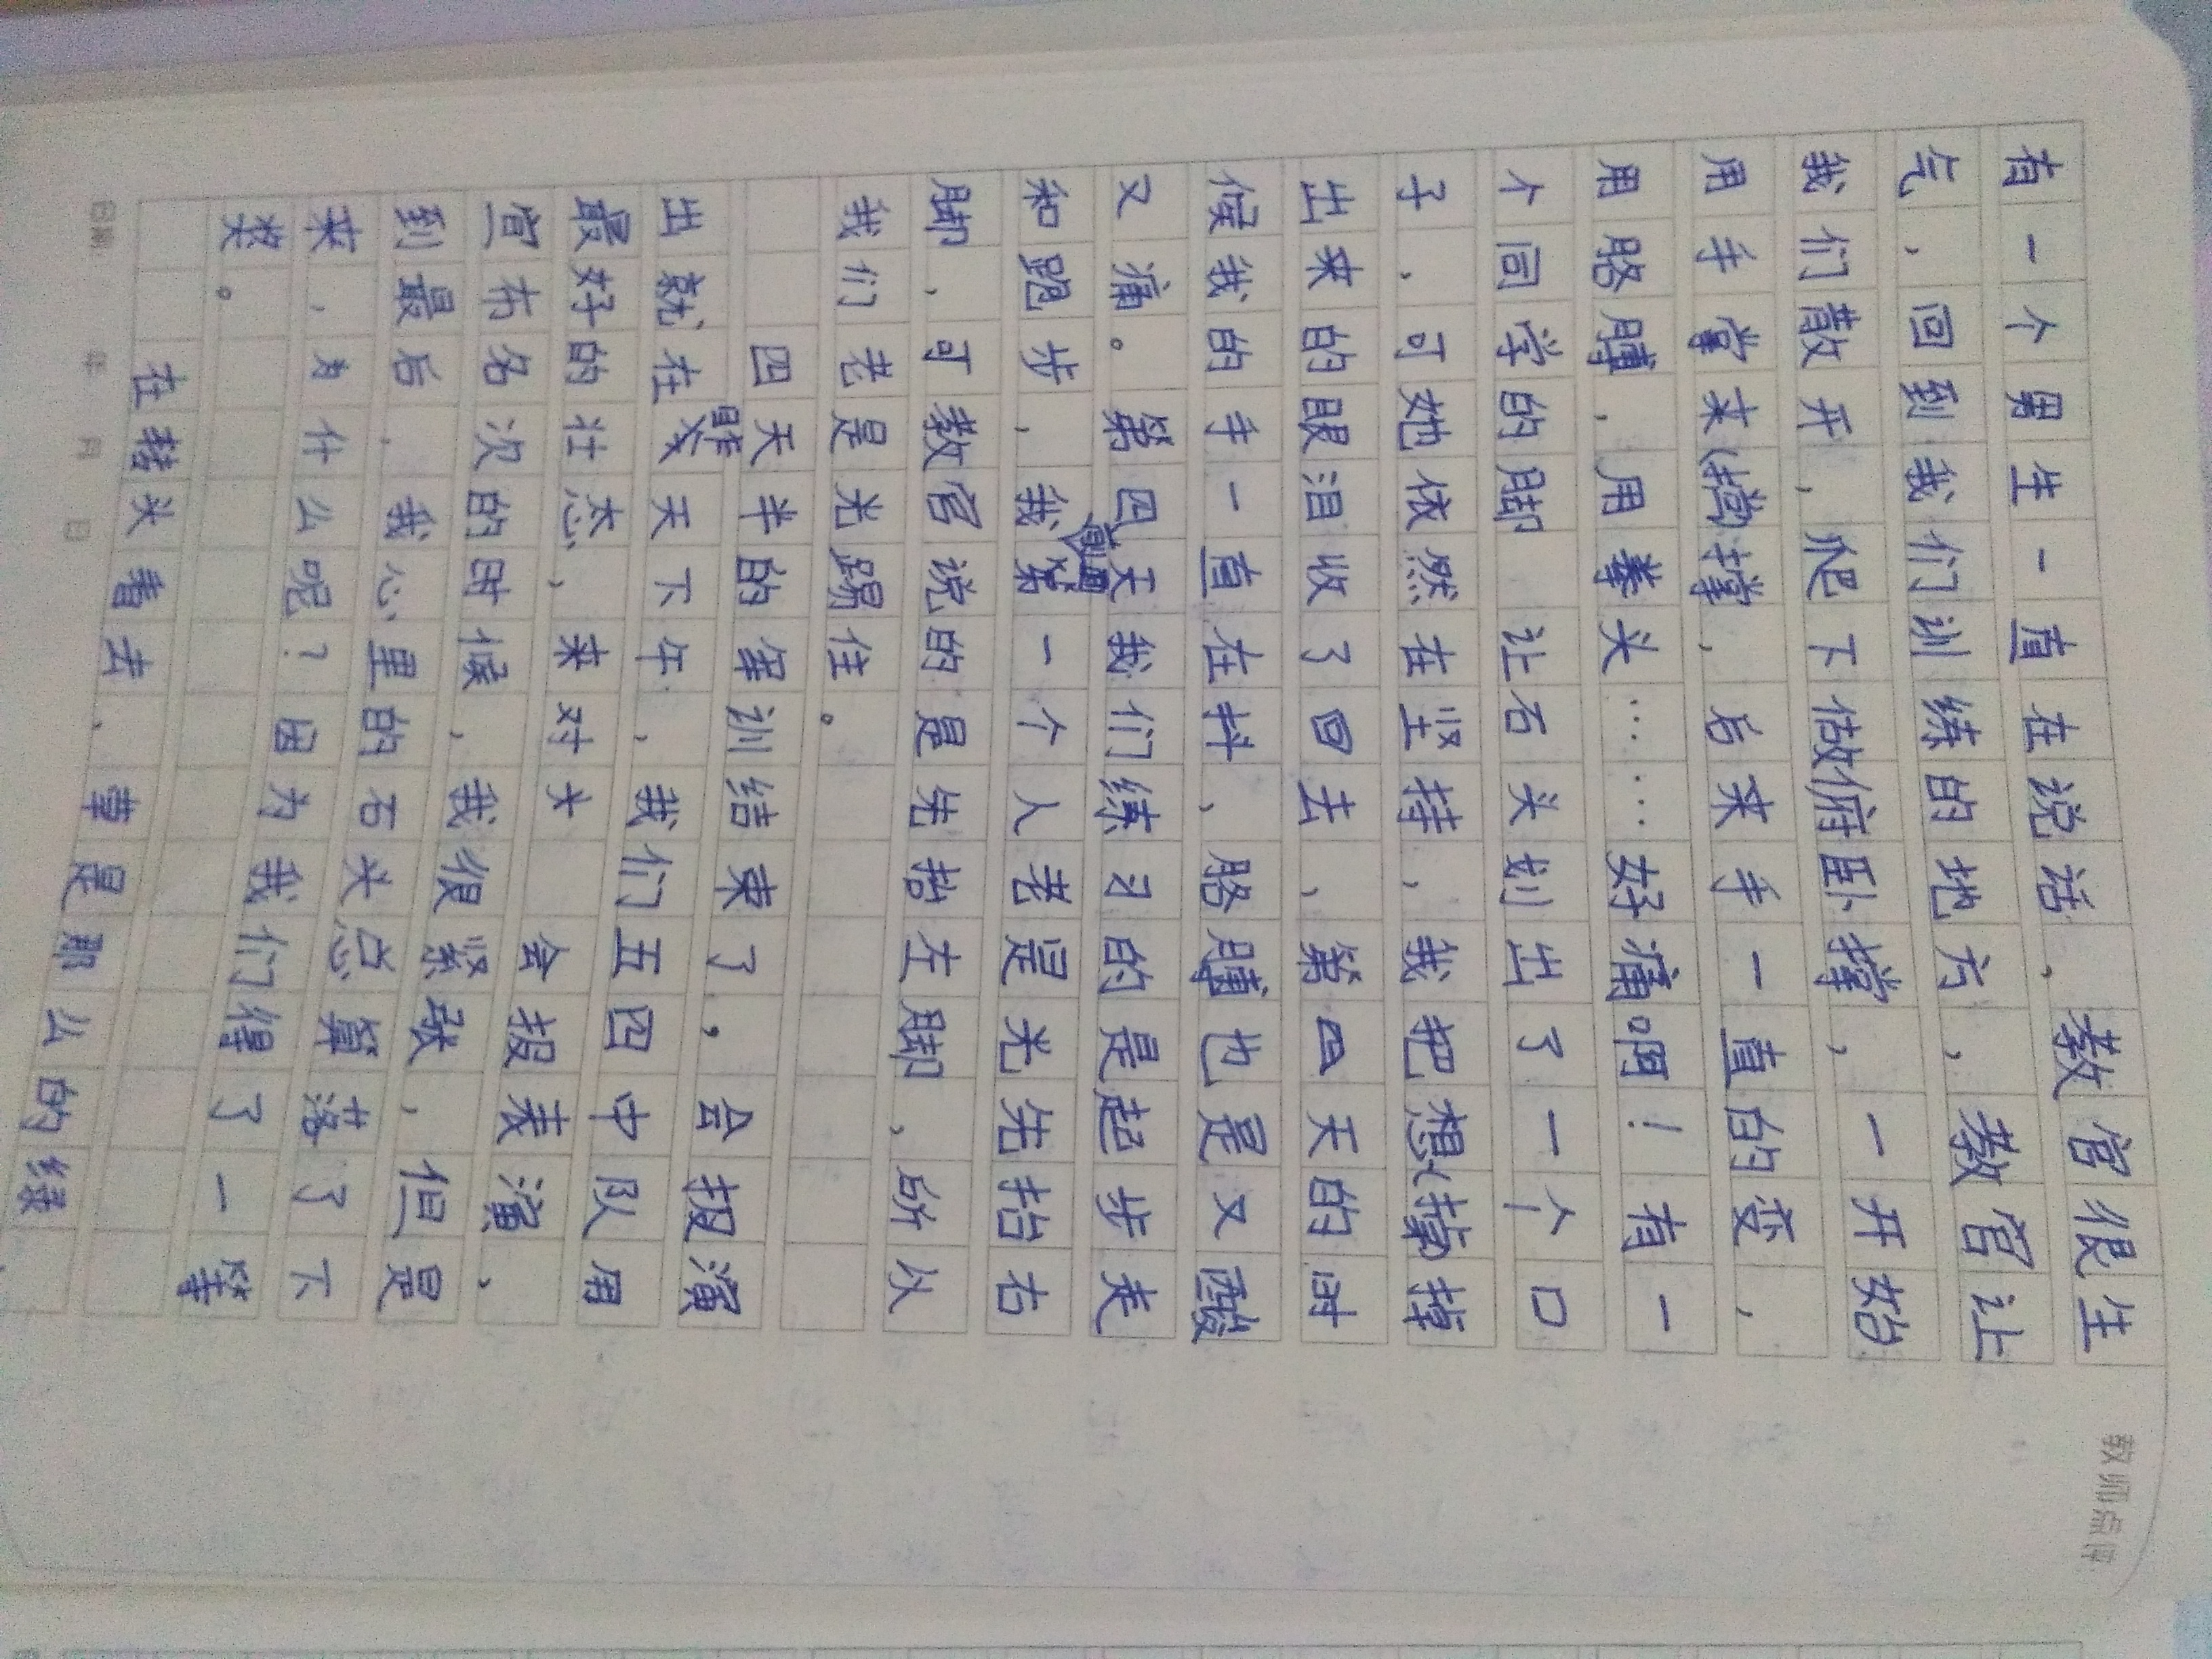 教师点评
有一个男生一直在说话，教官很生
气，回到我们训练的地方，教官让
我们散开，爬下做俯卧撑，一开始
用手掌来撑，后来手一直的变，
用胳膊，用拳头……好痛啊！有一
个同学的脚 让石头划出了一个口
子，可她依然在坚持，我把想掉
出来的眼泪收了回去，第四天的时
候我的手一直在抖，胳膊也是又酸
又痛。第四天我们练习的是起步走
和跑步，我一个人老是光先抬右
脚，可教官说的是先抬左脚，所以
我们老是光踢住。
四天半的军训结束了，会报演
出就在昨天下午，我们五四中队用
最好的壮态，来对大 会报表演，
宣布名次的时候，我很紧张，但是
到最后，我心里的石头总算落了下
来，为什么呢？因为我们得了一等
奖。
在转头看去，章是那么的绿，
日期 年 月 日